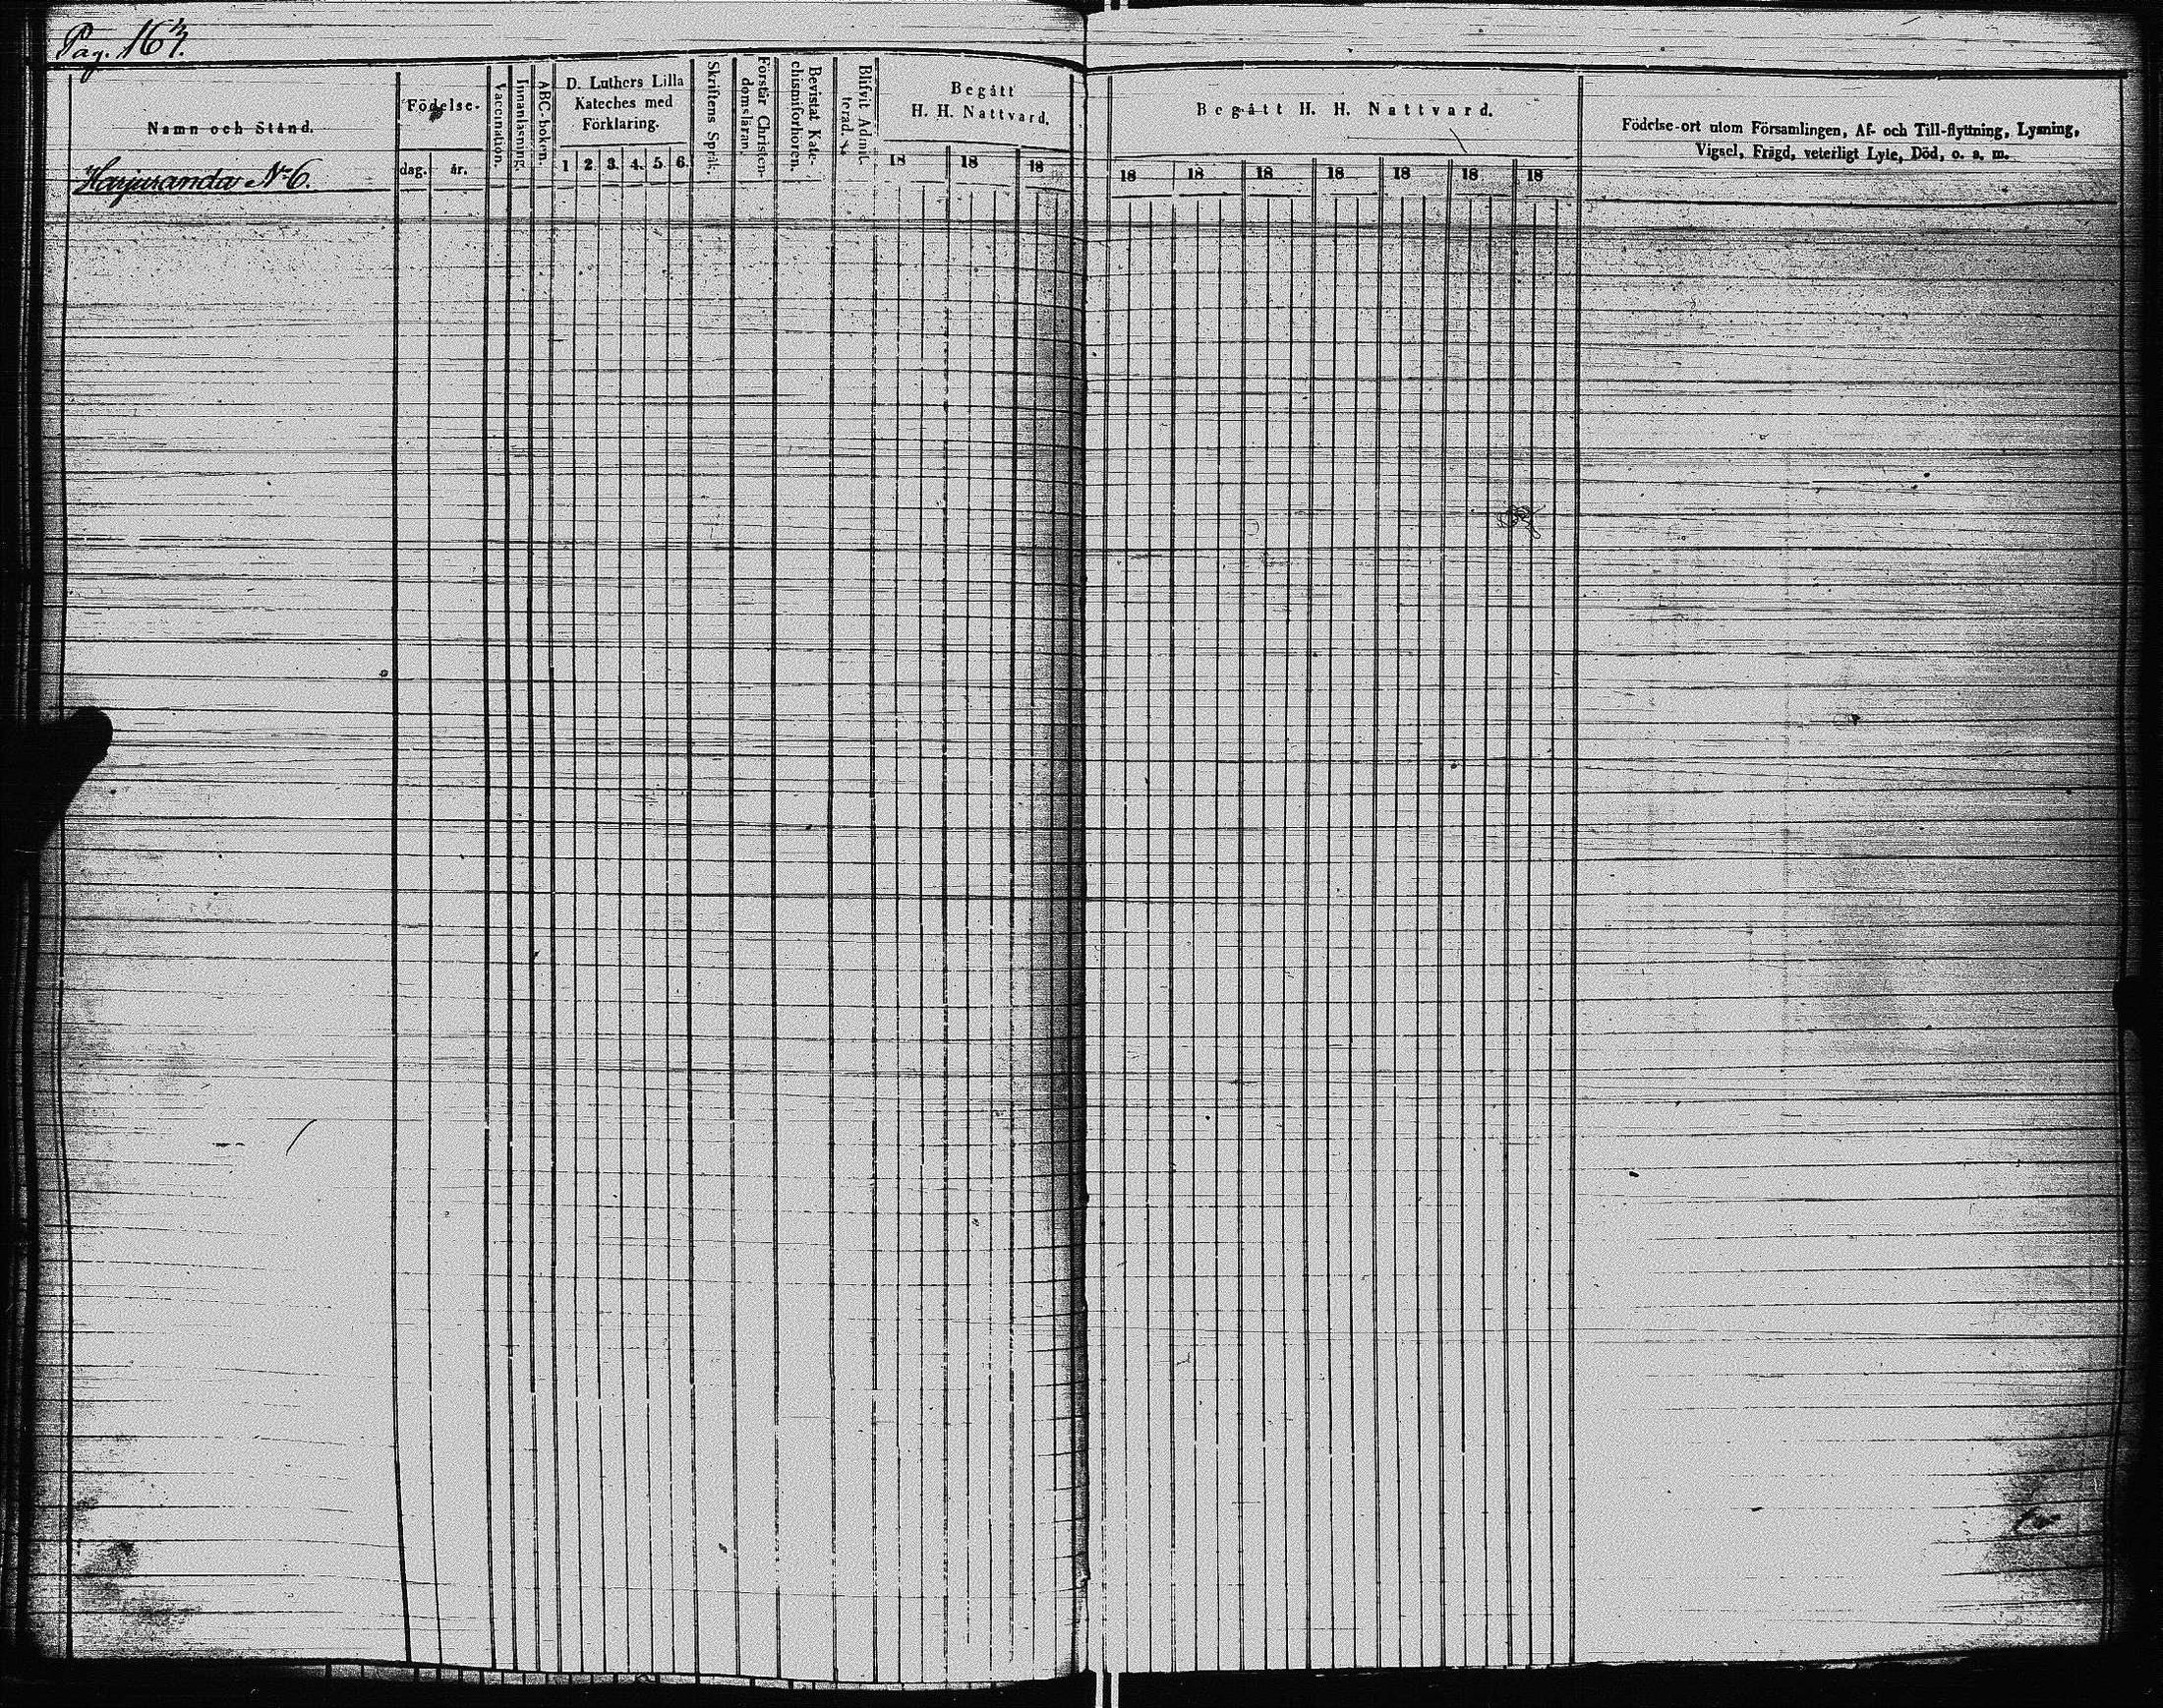 Pag. 167.
Namn och Stånd.
Harjuranda No 6.
Födelse-
dag. år.
Vaccination.
Innanläsning.
ABC-boken.
D. Luthers Lilla
Kateches med
Förklaring.
1 2 3. 4. 5. 6.
Skriftens Språk.
Förstår Christen-
domsläran.
Bevistat Kate-
chismiförhören.
Blifvit Admit-
terad.
Begått
H. H. Nattvard.
18 18 18
Begått H. H. Nattvard.
18 18 18 18 18 18 18
Födelse-ort utom Församlingen, Af- och Till-flyttning, Lysning,
Vigsel, Frägd, veterligt Lyte, Död, o. s. m.